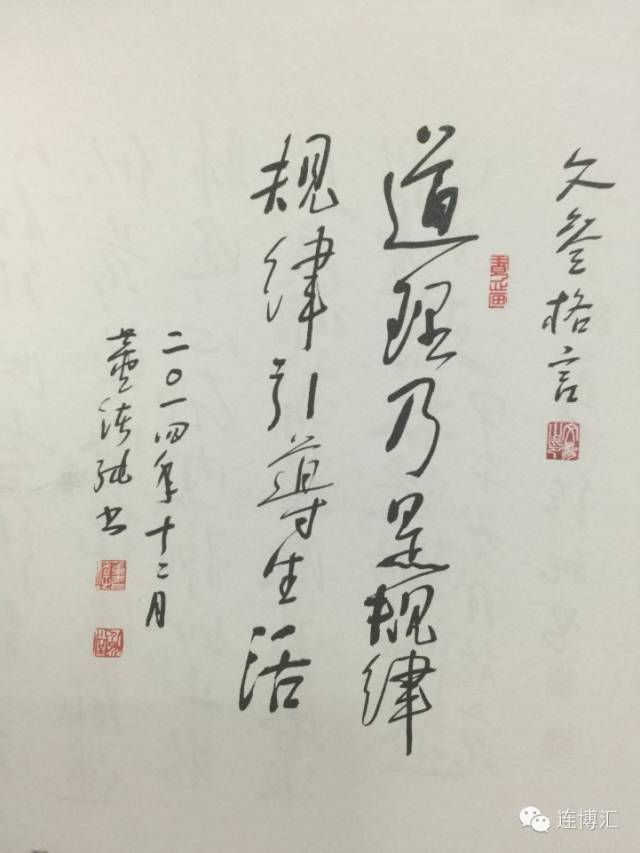 文参格言
道理乃是规律
规律引导生活
二〇一四年十二月
书
连博汇